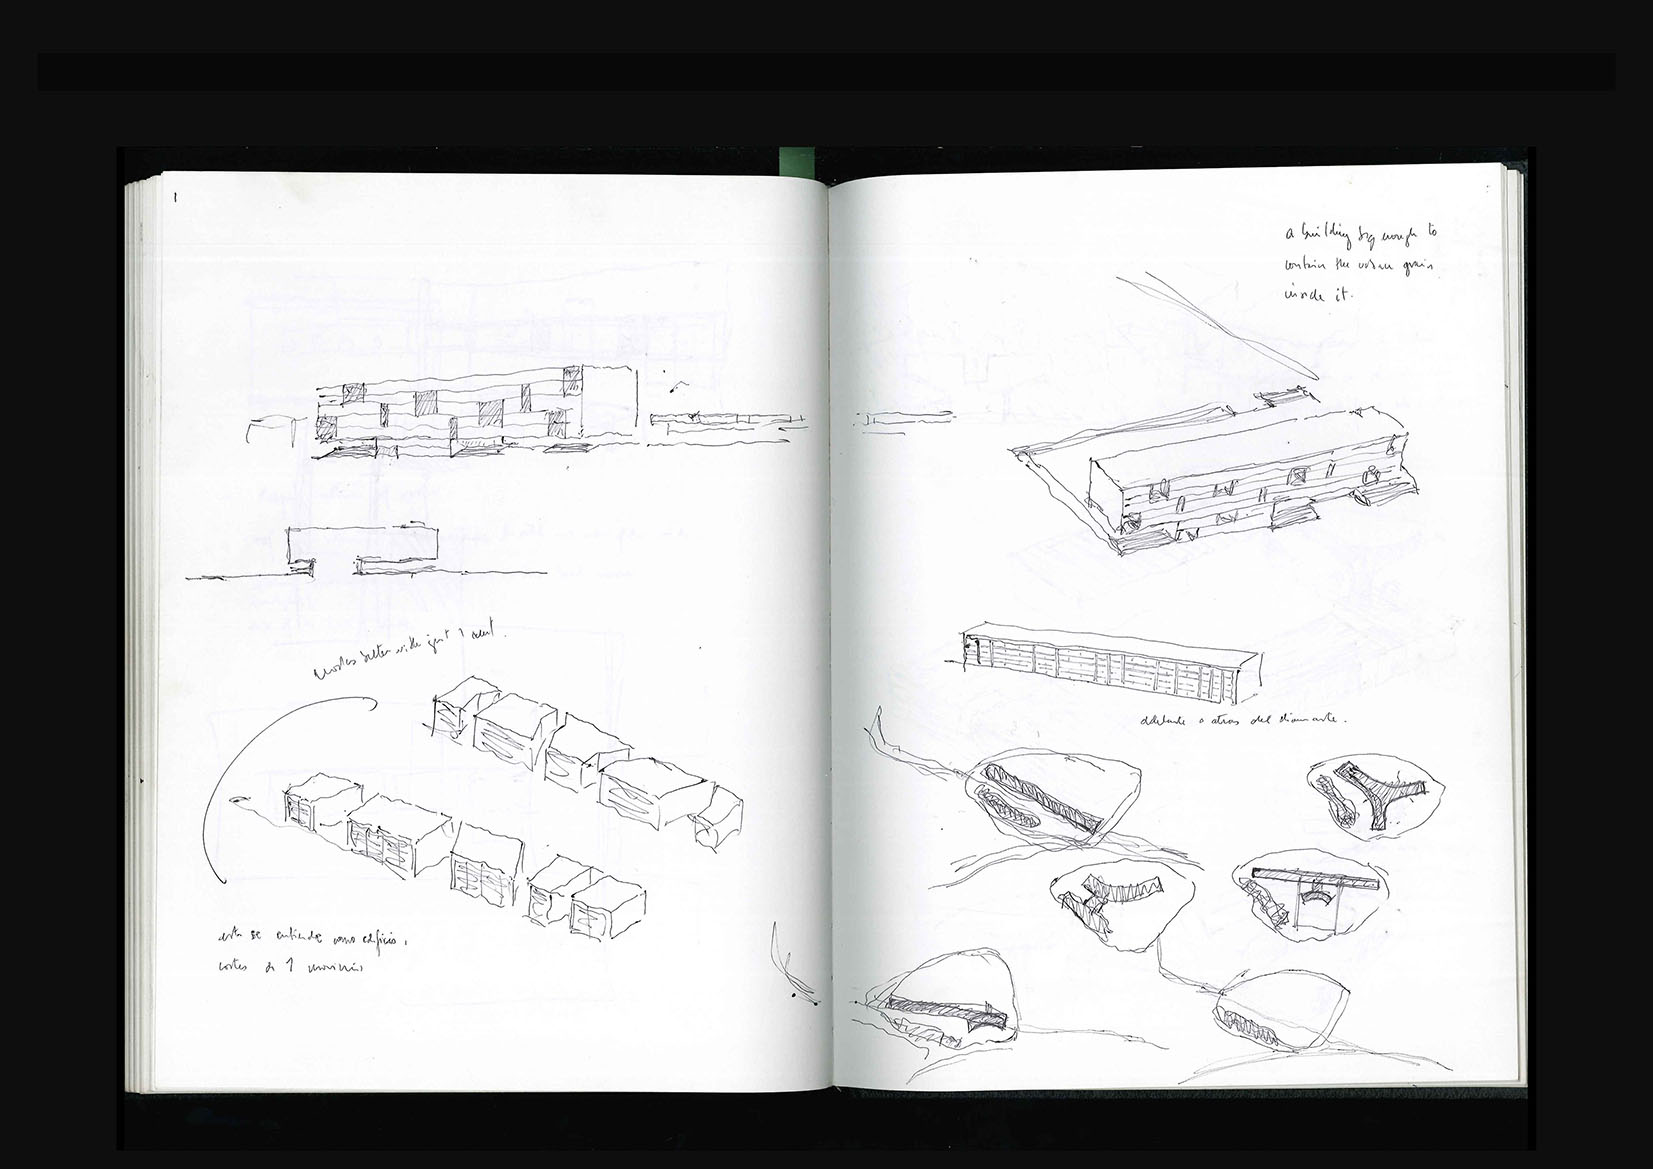 1
works better with just 1 
esta se entiende como edificio,
cortes de 1 
a building big enough to
contain the urban grain
inside it.
adelante o atras del diamante.